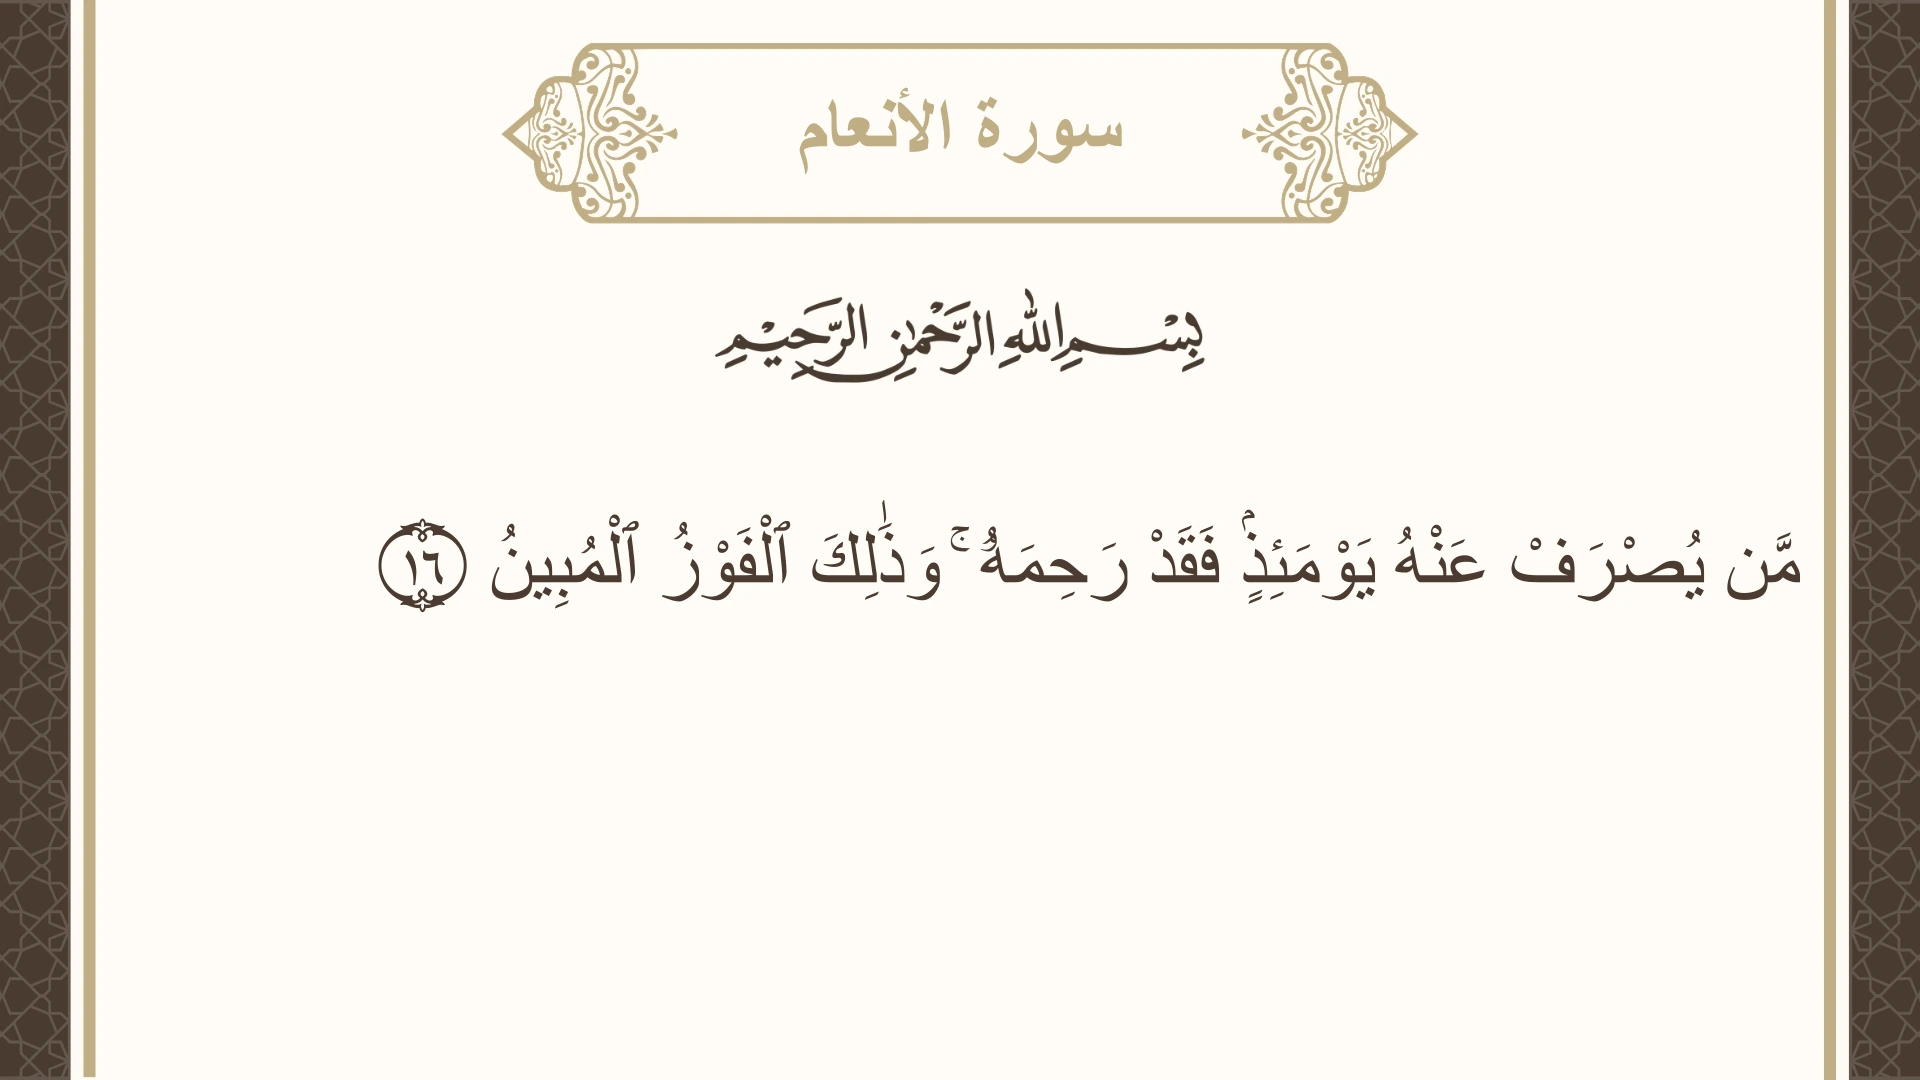 سورة الأنعام
بِسْمِ اللهِ الرَّحْمٰنِ الرَّحِيْمِ
مَّن يُصْرَفْ عَنْهُ يَوْمَئِذٍۢ فَقَدْ رَحِمَهُۥ ۚ وَذَٰلِكَ ٱلْفَوْزُ ٱلْمُبِينُ ١٦